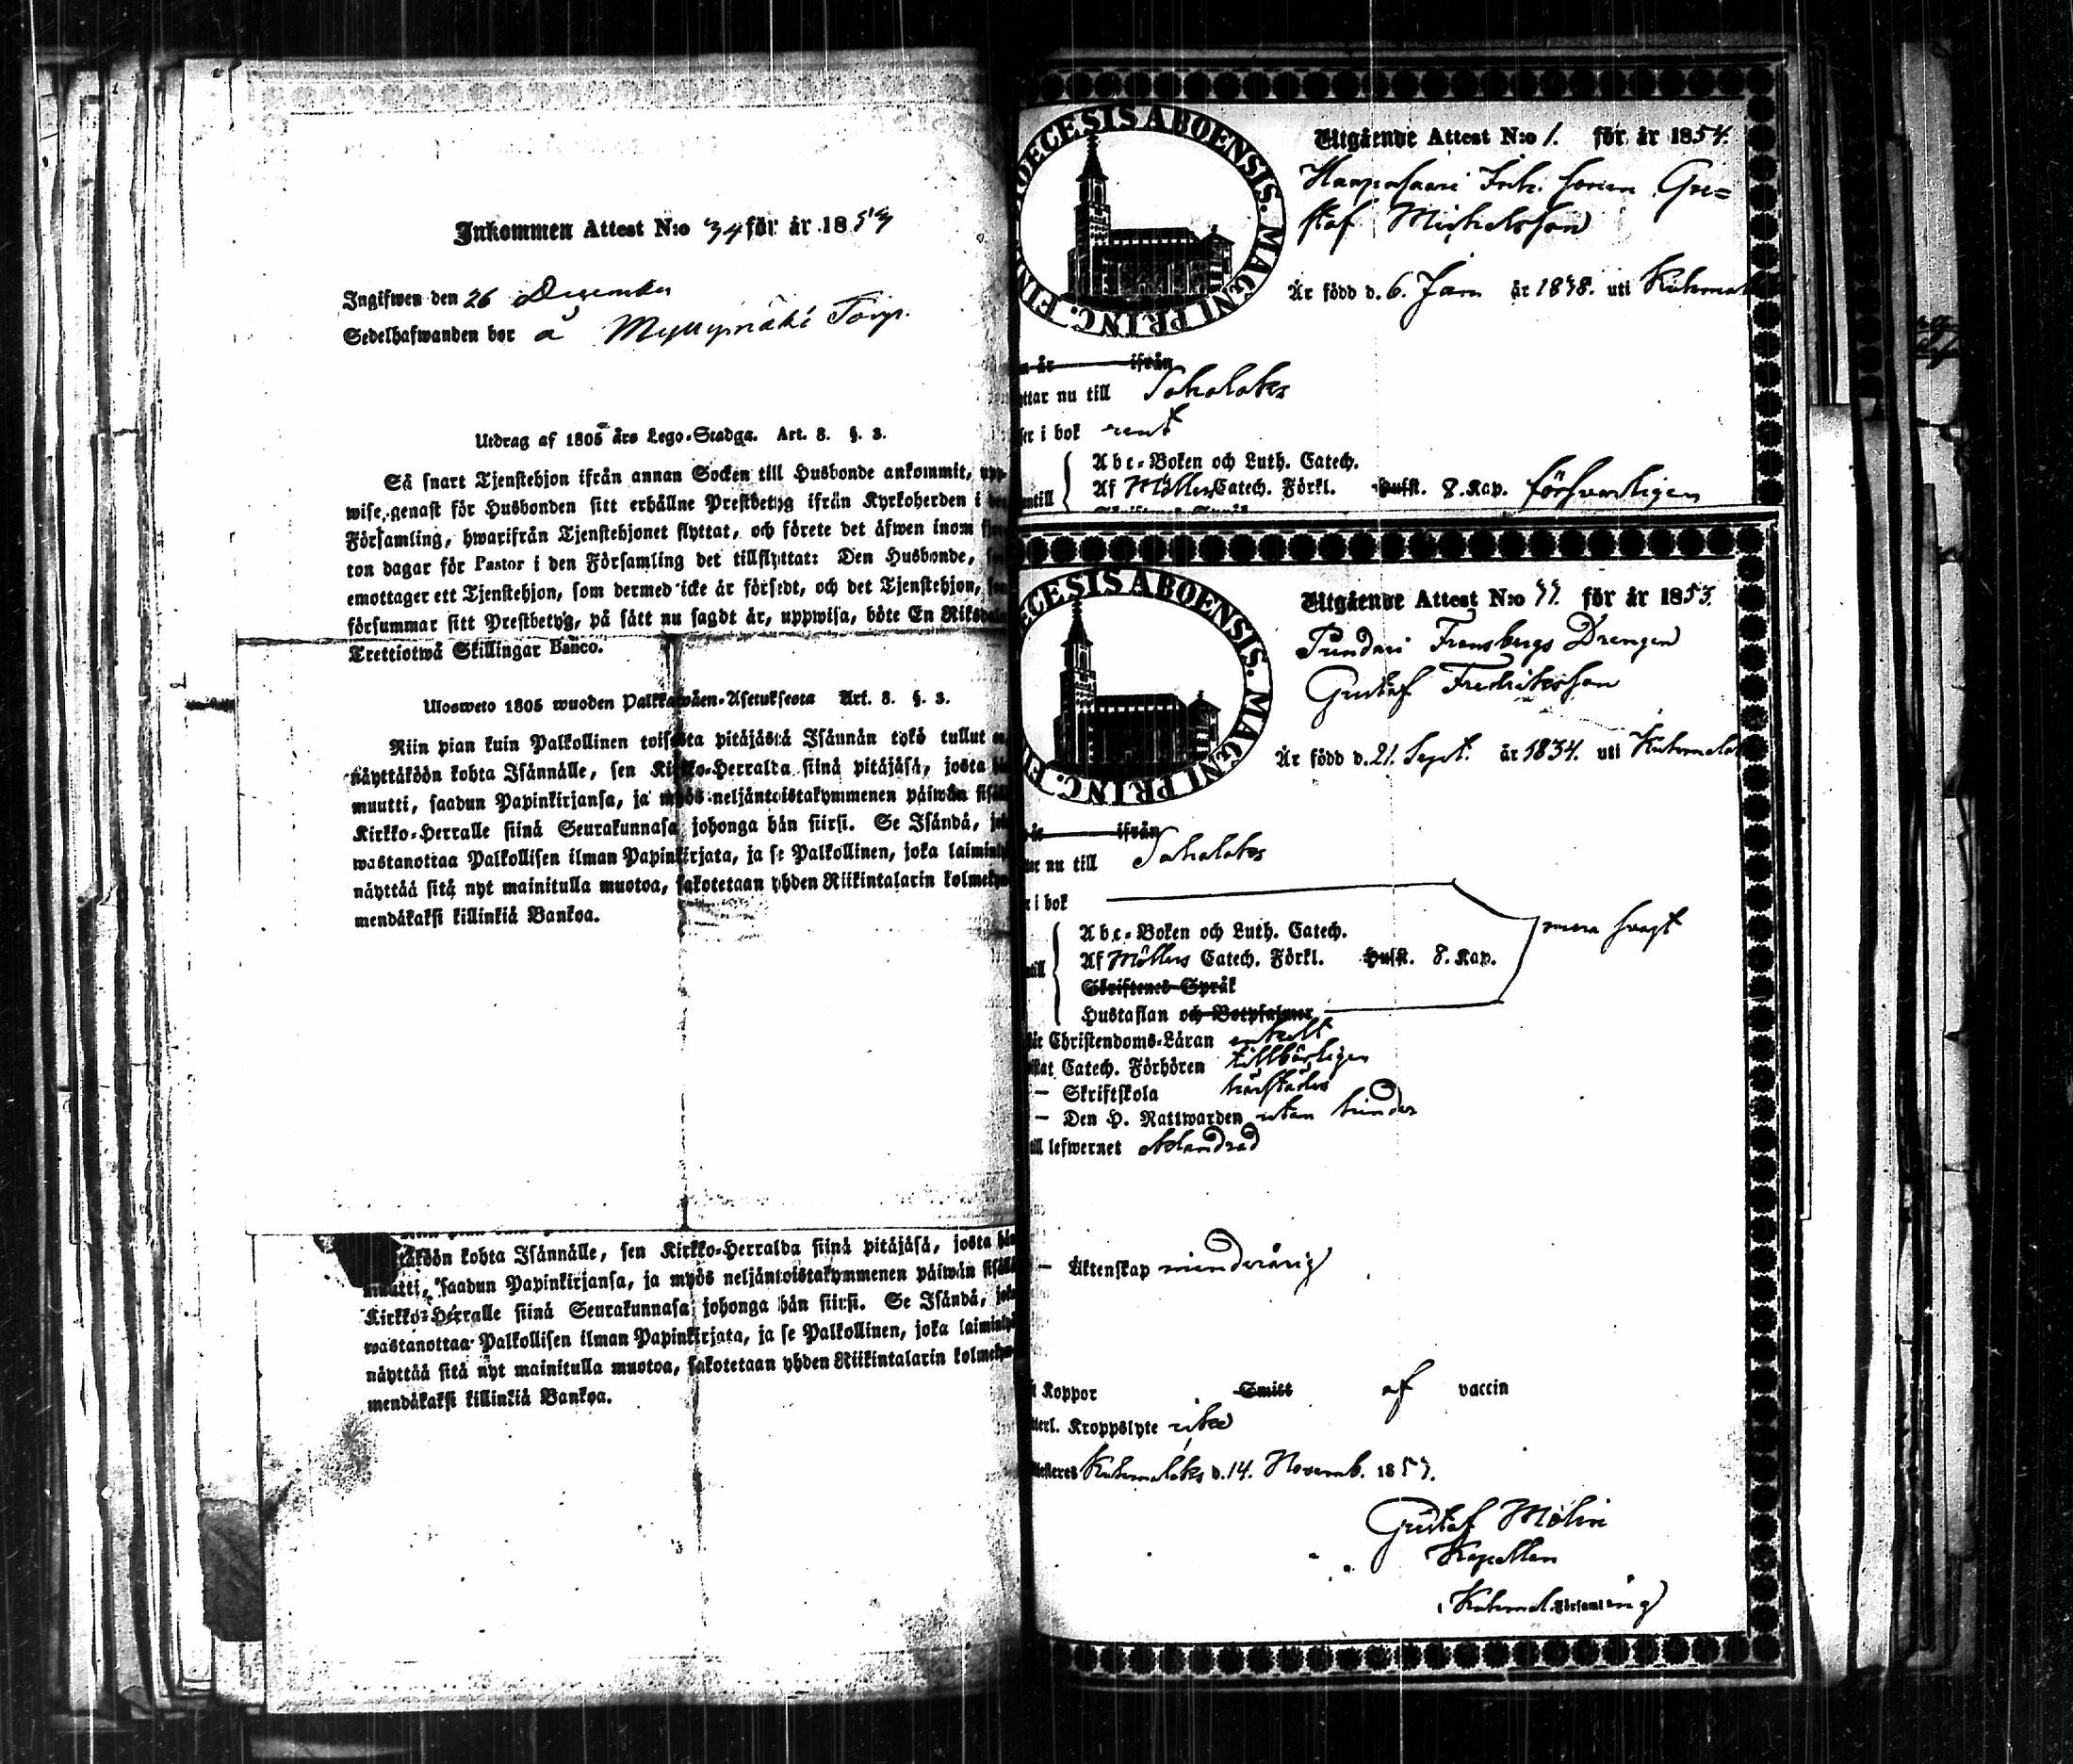 Inkommen Attest N:o 34 för år 1853
Ingifwen den 26 December
Sedelhafwanden bor å Myllymäki Torp.
Utdrag af 1805 års Lego-Stadga. Art. 8. §. 3.
Så snart Tjenstehjon ifrån annan Socken till Husbonde ankommit, upp-
wise, genast för Husbonden sitt erhållne Prestbetyg ifrån Kyrkoherden i den
Församling, hwarifrån Tjenstehjonet flyttat, och förete det äfwen inom fjor-
ton dagar för Pastor i den Församling det tillflyttat: Den Husbonde,
emottager ett Tjenstehjon, som dermed icke är försedt, och det Tjenstehjon,
försummar sitt Prestbetyg, på sätt nu sagdt är, uppwisa, böte En Riksdaler
Trettiotwå Skillingar Banco.
Ulosweto 1805 wuoden Palkkawäen-Asetuksesta Art. 8. §. 3.
Niin pian kuin Palkollinen toisesta pitäjästä Isännän tykö tullut on,
näyttäköön kohta Isännälle, sen Kirkko-Herralda siinä pitäjäsä, josta hän
muutti, saadun Papinkirjansa, ja myös neljäntoistakymmenen päiwän sisällä
Kirkko-Herralle siinä Seurakunnasa johonga hän siirsi. Se Isändä, joka
wastanottaa Palkollisen ilman Papinkirjata, ja se Palkollinen, joka laiminlyö
näyttää sitä nyt mainitulla muotoa, sakotetaan yhden Riikintalarin kolmekym-
mendäkaksi killinkiä Bankoa.
täköön kohta Isännälle, sen Kirkko-Herralda siinä pitäjäsä, josta hän
muutti, saadun Papinkirjansa, ja myös neljäntoistakymmenen päiwän sisällä
Kirkko-Herralle siinä Seurakunnasa johonga hän siirsi. Se Isändä, joka
wastanottaa Palkollisen ilman Papinkirjata, ja se Palkollinen, joka laiminlyö
näyttää sitä nyt mainitulla muotoa, sakotetaan yhden Riikintalarin kolmekym-
mendäkaksi killinkiä Bankoa.
OECESIS ABOENSIS. MAGNI PRINC. FIN
Utgående Attest N:o 1. för år 1854.
Gu=
staf Michelsson
Är född d. 6. Jan är 1838. uti
n år ifrån
ttar nu till Sahalaks
ser i bok rent
Abc-Boken och Luth. Catech.
Af Möllers Catech. Förkl. Hust. 8. Kap. försvarligen
ECESIS ABOENSIS. MAGNI PRINC. FI
Utgående Attest N:o 77. för år 1853.
Pundari Fransbergs Drengen
Gustaf Fredriksson
Är född d. 21. Sept. är 1834. uti Kuhmalaks
år ifrån
tar nu till Sahalaks
r i bok
Abc-Boken och Luth. Catech.
Af Möllers Catech. Förkl. Hust. 8. Kap. svagt
Skriftenes Språk
Hustaflan och Botpsalmer
Christendoms-Läran enkelt
Catech. Förhören tillbörligen
– Skriftskola härstädes
– Den H. Nattwarden utan hinder
till lefwernet oklandrad
– Äktenskap minderårig
Koppor Smitt af vaccin
terl. Kroppslyte utan
Kuhmalaks d. 14. Novemb. 1853.
Gustaf Molin
Kapellan
i Kuhmal. Församling